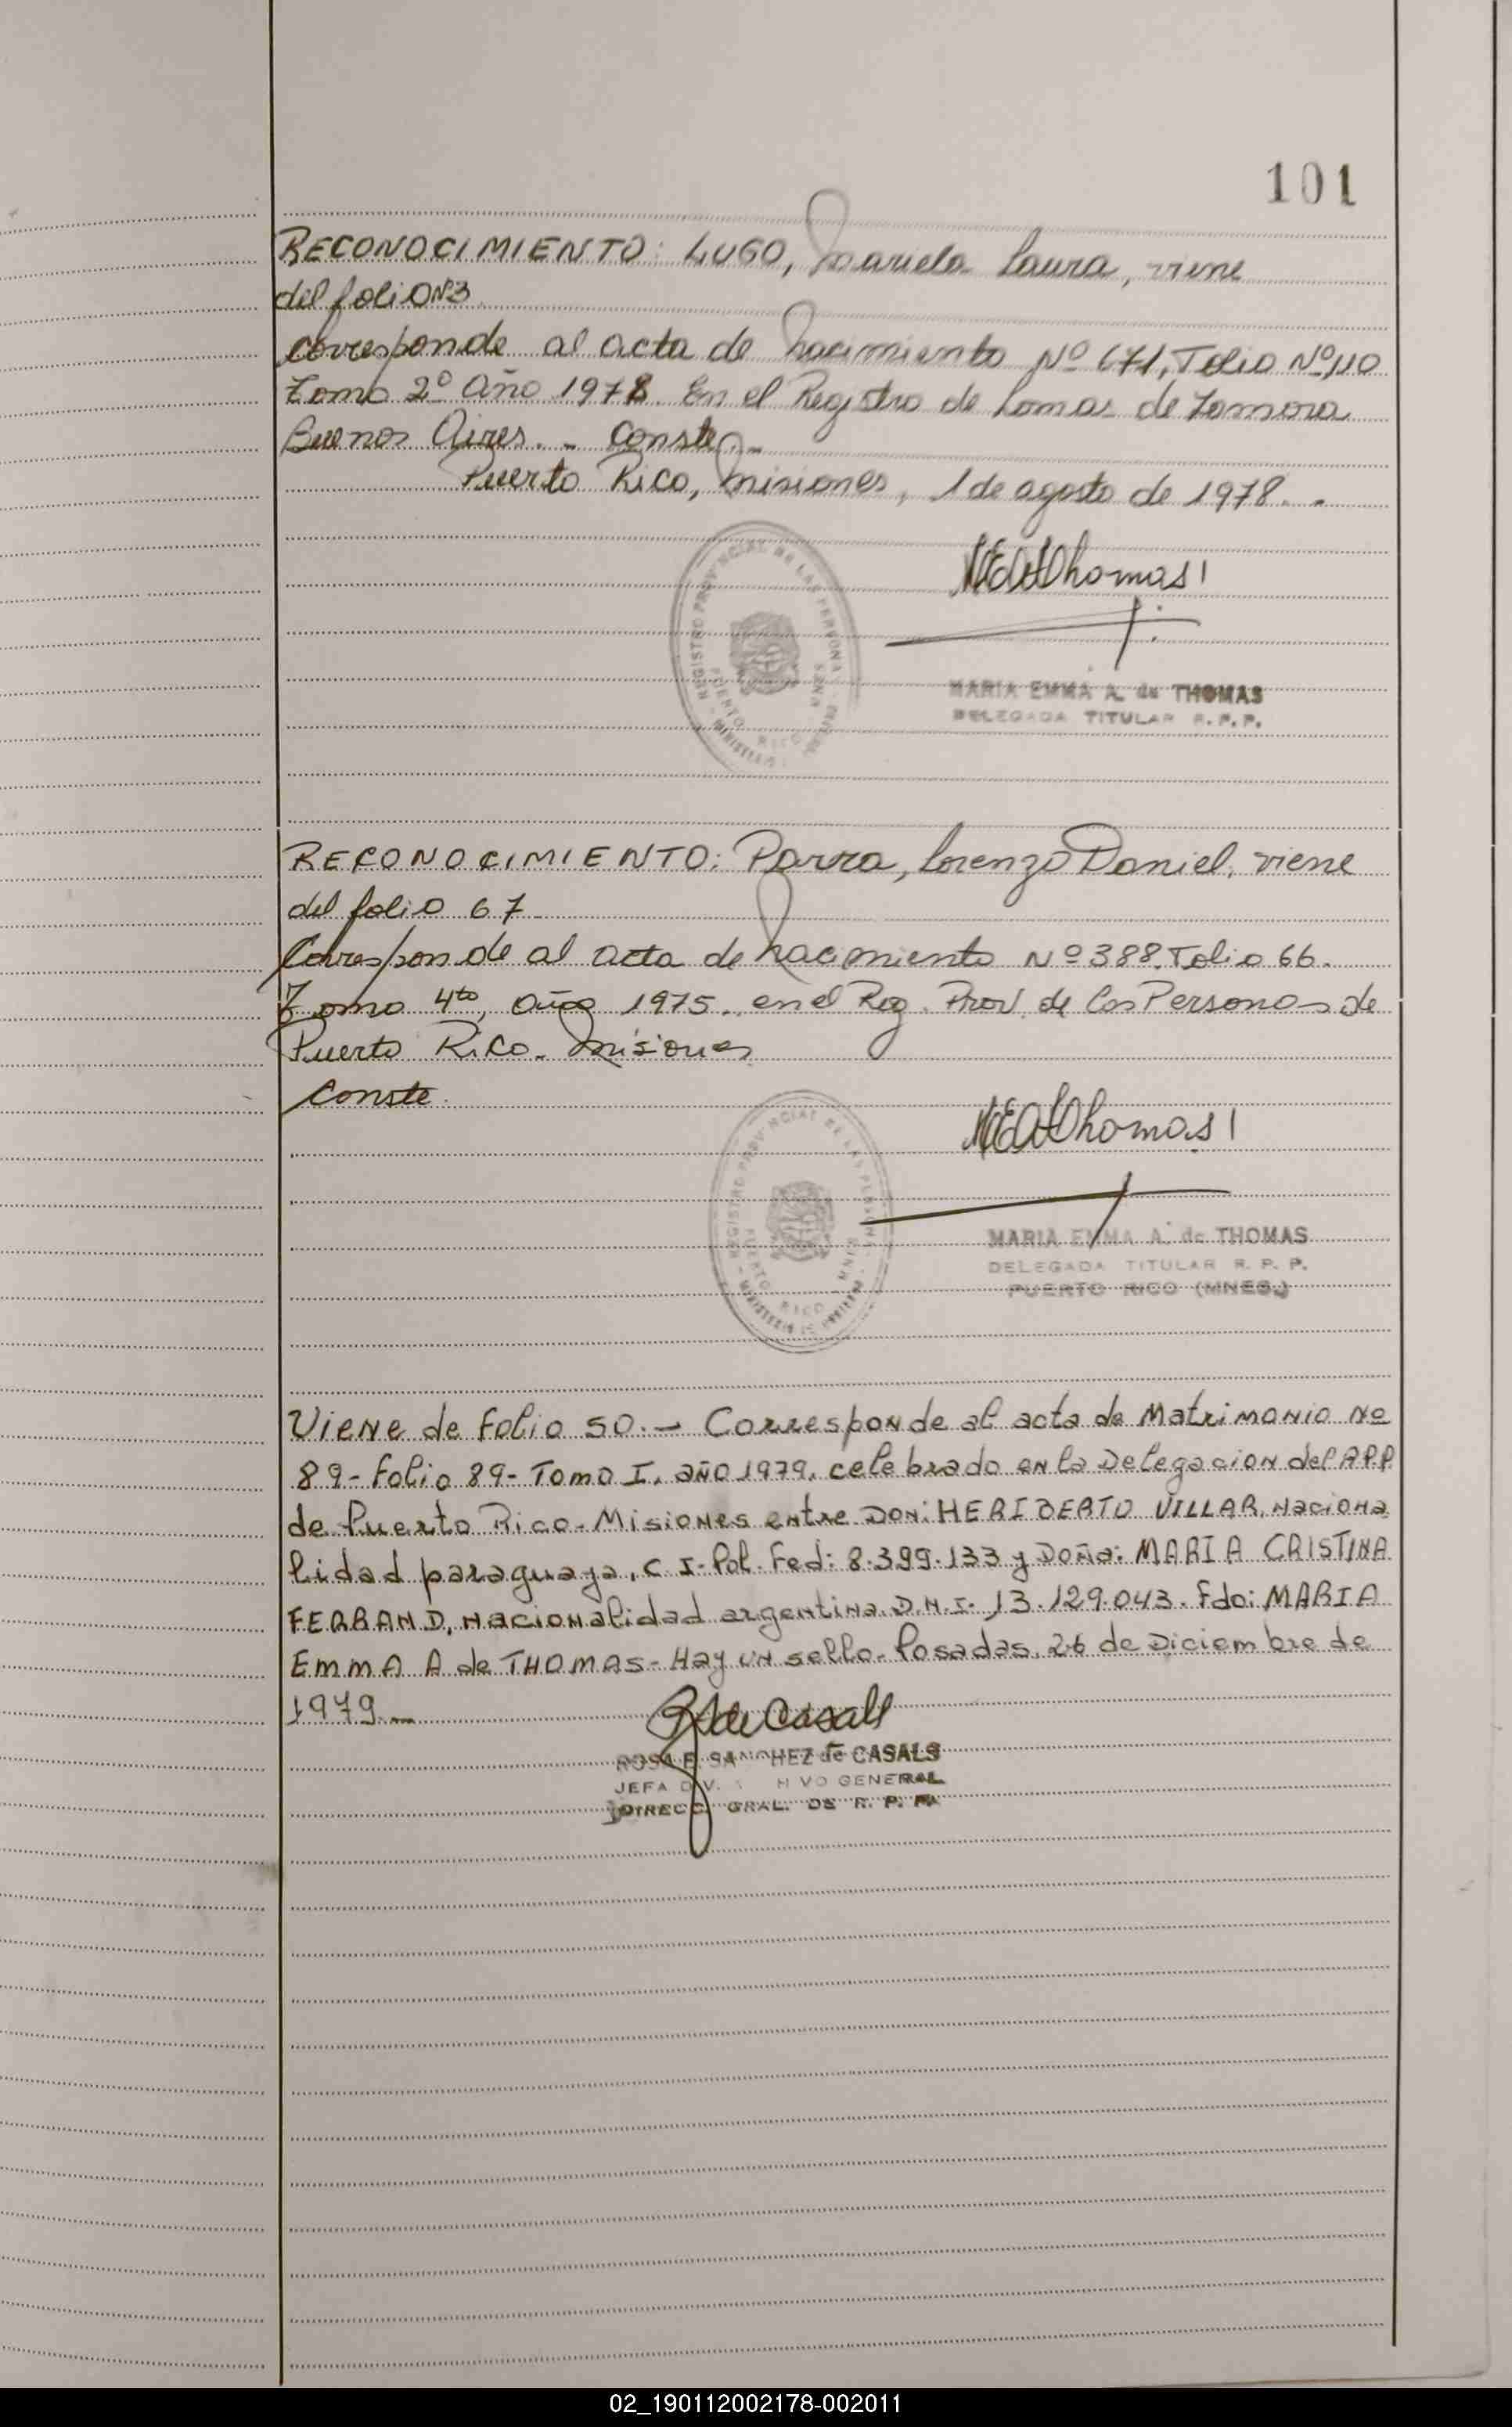 101
RECONOCIMIENTO: LUGO, Mariela Laura, viene
del folio Nº3
Corresponde al acta de Nacimiento Nº 671, Folio Nº110
Tomo 2º Año 1978. En el Registro de Lomas de Zamora
Buenos Aires. - Conste. -
Puerto Rico, Misiones, 1 de agosto de 1978. -
REGISTRO PROVINCIAL DE LAS PERSONAS
PUERTO RICO
MNES
MEAdThomas
MARIA EMMA A. de THOMAS
DELEGADA TITULAR R. P. P.
RECONOCIMIENTO: Parra, Lorenzo Daniel, viene
del folio 67
Corresponde al acta de Nacimiento Nº 388. Folio 66.
Tomo 4to, Año 1975. en el Reg. Prov. de las Personas de
Puerto Rico - Misiones
Conste.
REGISTRO PROVINCIAL DE LAS PERSONAS
PUERTO RICO
MNES
MEAdThomas
MARIA EMMA A. de THOMAS
DELEGADA TITULAR R. P. P.
PUERTO RICO (MNES.)
Viene de Folio 50. - Corresponde al acta de Matrimonio Nº
89 - Folio 89 - Tomo I. año 1979. celebrado en la Delegacion del R.P.P.
de Puerto Rico - Misiones entre Don: HERIBERTO VILLAR, Naciona
lidad paraguaya, C.I. Pol. Fed: 8.399.133 y Doña: MARIA CRISTINA
FERRAND, Nacionalidad argentina D.N.I. 13.129.043. Fdo: MARIA
EmmA A de THOMAS - Hay un sello - Posadas, 26 de Diciembre de
1979. -
R S de Casals
ROSA E. SANCHEZ de CASALS
JEFA DIV. GENERAL
DIRECC. GRAL. DE R. P. P.
02_190112002178-002011